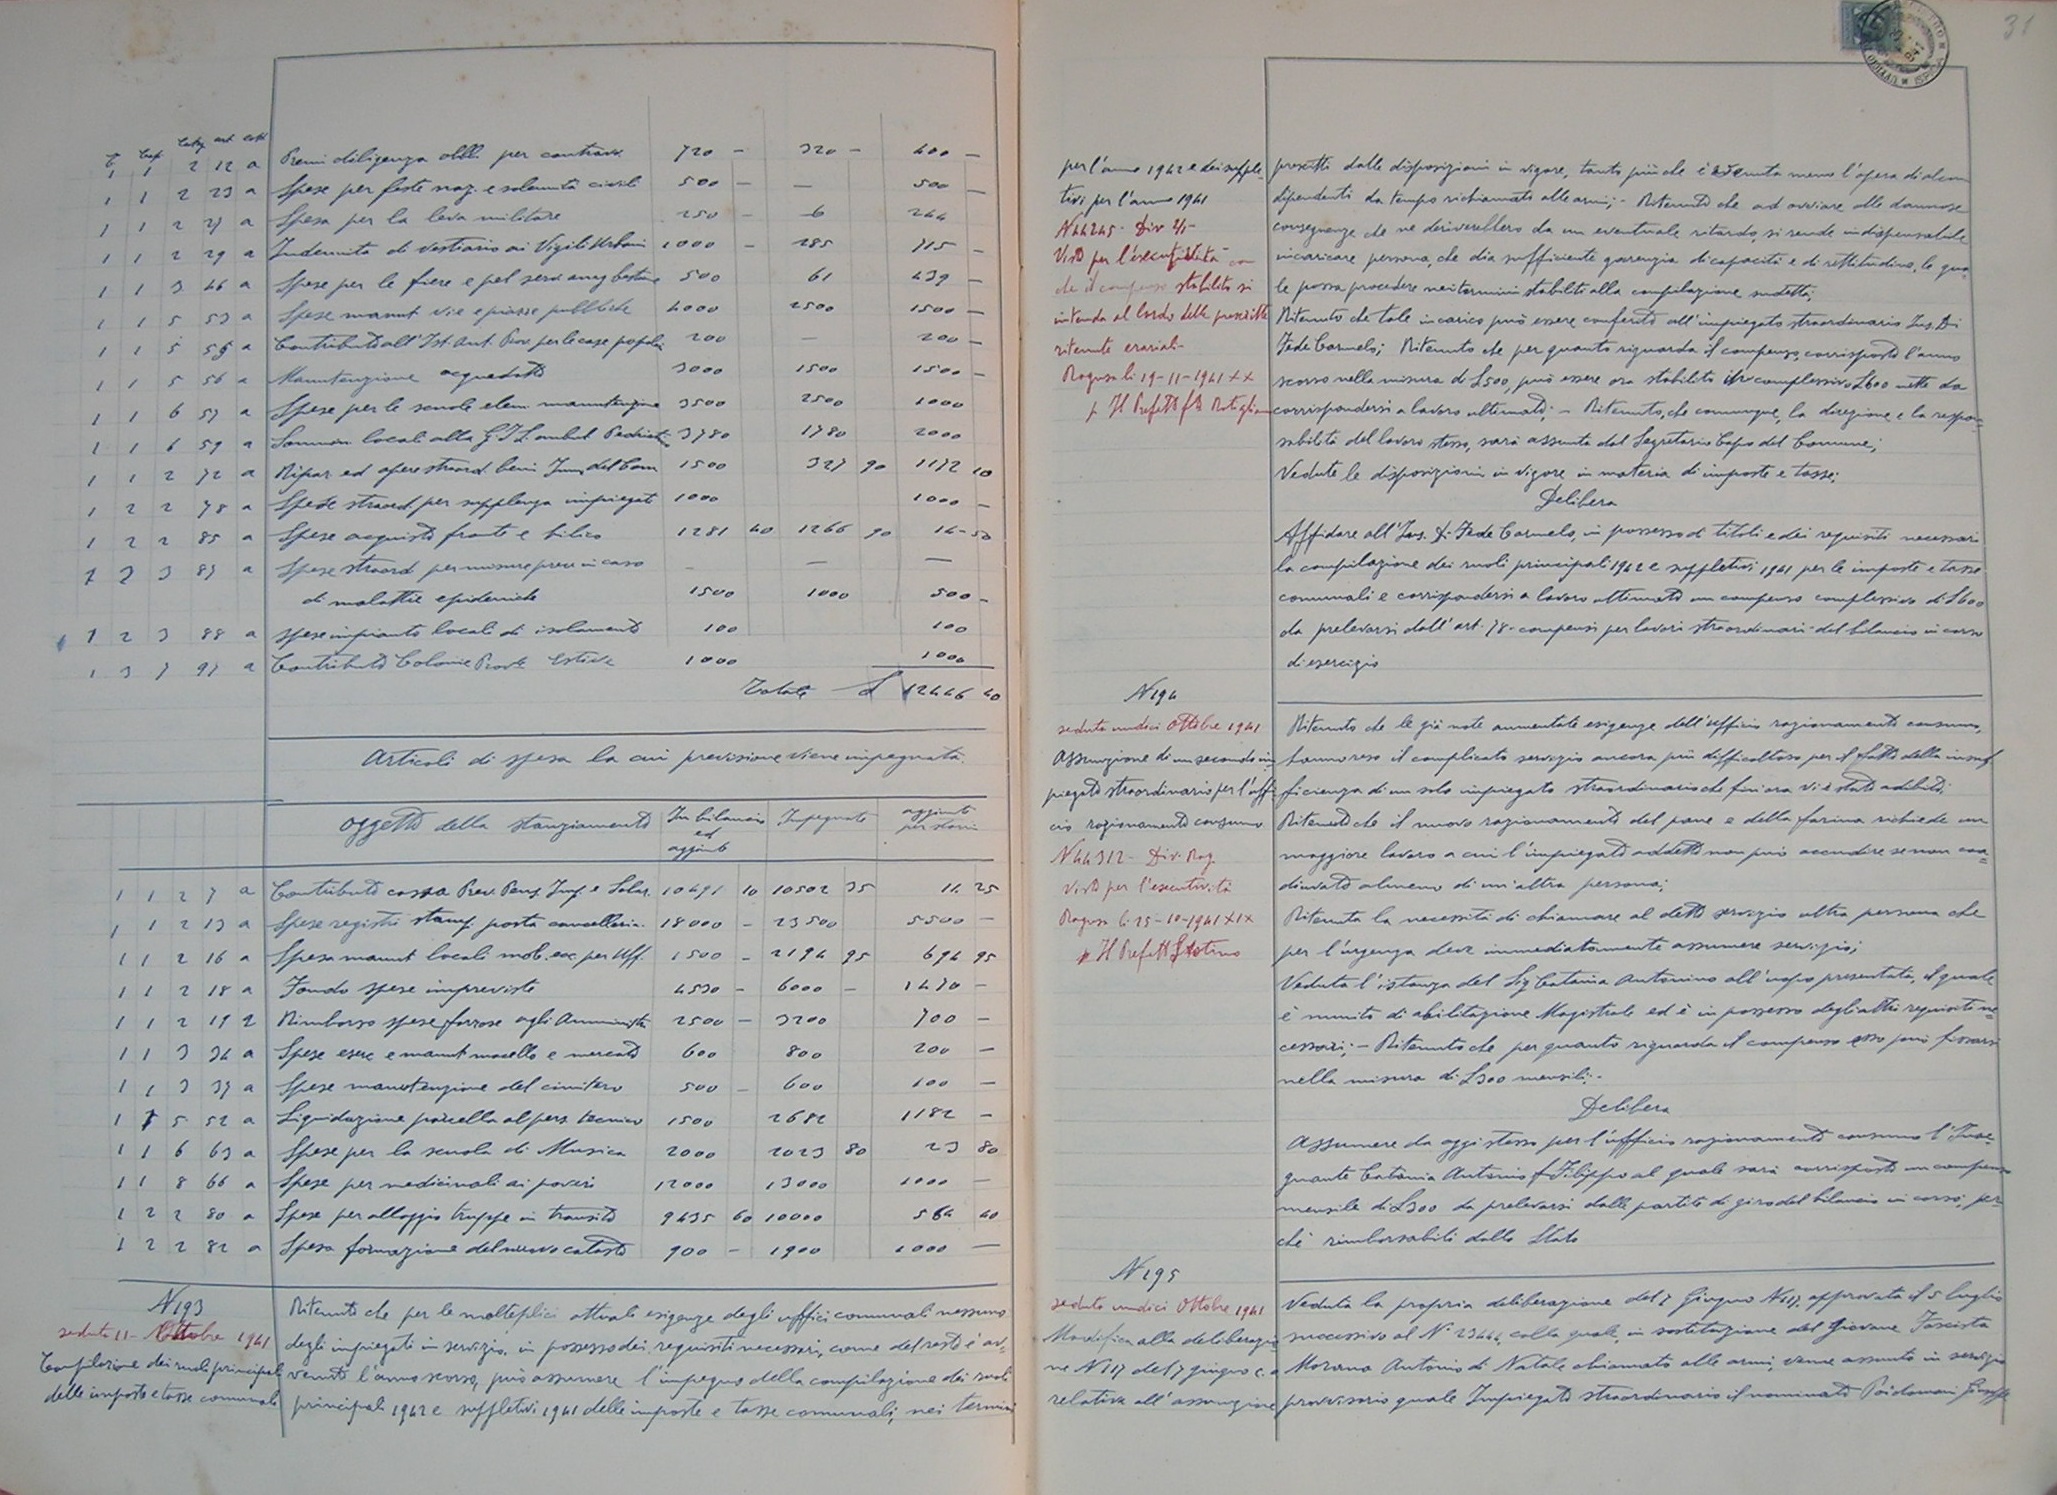 T Cap Categ art cost
1 1 2 12 a Premi diligenza obbl. per contravv. 720 — 320 — 400 —
1 1 2 23 a Spese per feste naz. e solennità civili 500 — — 500 —
1 1 2 27 a Spesa per la leva militare 250 — 6 244
1 1 2 29 a Indennità di vestiario ai Vigili Urbani 1000 — 285 715 —
1 1 3 46 a Spese per le fiere e pel serv. anag bestiame 500 61 439 —
1 1 5 53 a Spese manut vie e piazze pubbliche 4000 2500 1500 —
1 1 5 55 a Contributo all'Ist. Aut. Prov. per le case popolari 200 — 200 —
1 1 5 56 a Manutenzione acquedotto 3000 1500 1500 —
1 1 6 57 a Spese per le scuole elem. manutenzione 3500 2500 1000
1 1 6 59 a Sommin locali alla G.I.L. ambul. 3780 1780 2000
1 1 2 72 a Ripar. ed opere straord. beni Imm. del Com 1500 327 90 1172 10
1 2 2 78 a Spese straord. per supplenza impiegati 1000 1000 —
1 2 2 85 a Spese acquisto e bilico 1281 40 1266 90 14-50
1 2 3 87 a Spese straord per misure prev. in caso — — —
di malattie epidemiche 1500 1000 500 —
1 2 3 88 a Spese impianto locali di isolamento 100 100
1 3 7 97 a Contributo Colonie Prov. Estive 1000 1000
Totale £ 12446 40
Articoli di spesa la cui previsione viene impegnata.
Oggetto dello stanziamento In bilancio ed aggiunte Impegnate aggiunte per storni
1 1 2 7 a Contributo cassa Prev. Pens. Imp. e Salar. 10491 10 10502 35 11 25
1 1 2 13 a Spese registri stamp. posta cancelleria 18000 — 23500 5500 —
1 1 2 16 a Spesa manut locali mob. ecc per Uff. 1500 — 2194 95 694 95
1 1 2 18 a Fondo spese impreviste 4530 — 6000 — 1470 —
1 1 2 19 2 Rimborso spese forzose agli Amministr. 2500 — 3200 700 —
1 1 3 34 a Spese eserc e manut macello e mercato 600 800 200 —
1 1 3 37 a Spese manutenzione del cimitero 500 — 600 100 —
1 1 5 52 a Liquidazione parcella al pers. tecnico 1500 2682 1182 —
1 1 6 63 a Spese per la scuola di Musica 2000 2023 80 23 80
1 1 8 66 a Spese per medicinali ai poveri 12000 13000 1000 —
1 2 2 80 a Spese per alloggio truppe in transito 9435 60 10000 564 40
1 2 2 82 a Spesa formazione del nuovo catasto 900 — 1900 1000 —
N 193
seduta 11 - Ottobre 1941
Compilazione dei ruoli principali
delle imposte e tasse comunali
Ritenuto che per le molteplici attuali esigenze degli uffici comunali nessuno
degli impiegati in servizio, in possesso dei requisiti necessari, come del resto è av-
venuto l'anno scorso, può assumere l'impegno della compilazione dei ruoli
principali 1942 e suppletivi 1941 delle imposte e tasse comunali, nei termini
31
per l'anno 1942 e dei supple-
tivi per l'anno 1941
N 44245 - Div 2/1-
Visto per l'esecutività con
che il compenso stabilito si
intenda al lordo delle prescritte
ritenute erariali-
Ragusa li 19-11-1941 XX
p Il Prefetto
prescritti dalle disposizioni in vigore, tanto più che è venuta meno l'opera di alcuni
dipendenti da tempo richiamati alle armi; - Ritenuto che ad ovviare alle dannose
conseguenze che ne deriverebbero da un eventuale ritardo, si rende indispensabile
incaricare persona, che dia sufficiente garenzia di capacità e di rettitudine, la qua-
le possa procedere nei termini stabiliti alla compilazione sudetta;
Ritenuto che tale incarico può essere conferito all'impiegato straordinario Ins. Di
Fede Carmelo; Ritenuto che per quanto riguarda il compenso, corrisposto l'anno
scorso nella misura di £500, può essere ora stabilito in complessive £600 nette da
corrispondersi a lavoro ultimato; - Ritenuto, che comunque, la direzione e la respon-
sabilità del lavoro stesso, sarà assunta dal Segretario Capo del Comune;
Vedute le disposizioni in vigore in materia di imposte e tasse;
Delibera
Affidare all'Ins. Di Fede Carmelo, in possesso di titoli e dei requisiti necessari
la compilazione dei ruoli principali 1942 e suppletivi 1941 per le imposte e tasse
comunali e corrispondersi a lavoro ultimato un compenso complessivo di £600
da prelevarsi dall'art. 78 - compensi per lavori straordinari - del bilancio in corso
di esercizio
N 194
seduta undici Ottobre 1941
Assunzione di un secondo im-
piegato straordinario per l'uffi-
cio razionamento consumo
N 44312 - Div. Rag.
Visto per l'esecutività
Ragusa li 25-10-1941 XIX
p Il Prefetto
Ritenuto che le già note aumentate esigenze dell'ufficio razionamento consumo,
hanno reso il complicato servizio ancora più difficoltoso per il fatto della insuf-
ficienza di un solo impiegato straordinario che fin'ora vi è stato adibito;
Ritenuto che il nuovo razionamento del pane e della farina richiede un
maggiore lavoro a cui l'impiegato addetto non può accudire se non coa-
diuvato almeno di un'altra persona;
Ritenuta la necessità di chiamare al detto servizio altra persona che
per l'urgenza deve immediatamente assumere servizio;
Veduta l'istanza del Sig Catania Antonino all'uopo presentata, il quale
è munito di abilitazione Magistrale ed è in possesso degli altri requisiti ne-
cessari; - Ritenuto che per quanto riguarda il compenso esso può fissarsi
nella misura di £300 mensili; -
Delibera
Assumere da oggi stesso per l'ufficio razionamento consumo l'Inse-
gnante Catania Antonino f Filippo al quale sarà corrisposto un compenso
mensile di £300 da prelevarsi dalle partite di giro del bilancio in corso, per-
chè rimborsabili dallo Stato
N 195
seduta undici Ottobre 1941
Modifica alla deliberazio-
ne N 117 del 7 giugno c.a
relativa all'assunzione
Veduta la propria deliberazione del 7 Giugno N 117, approvata il 5 luglio
successivo al N° 23444, colla quale, in sostituzione del Giovane Fascista
Morana Antonio di Natale chiamato alle armi, venne assunto in servizio
provvisorio quale Impiegato straordinario il nominato Poidomani Giuseppe